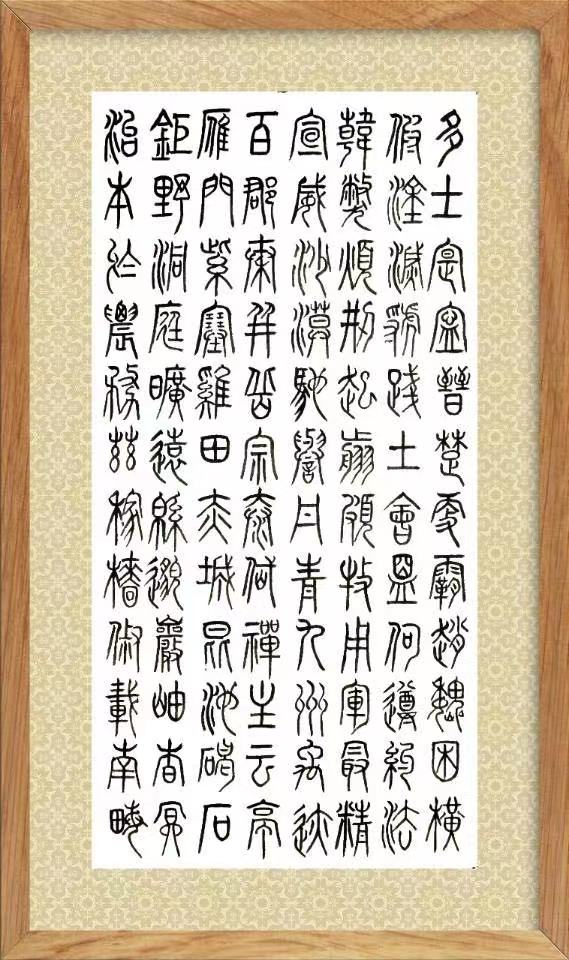 多士寔寧晉楚更霸趙魏困橫
假塗滅虢踐土會盟何遵約法
韓弊煩刑起翦頗牧用軍最精
宣威沙漠馳譽丹青九州禹迹
百郡秦并嶽宗泰岱禪主云亭
雁門紫塞雞田赤城昆池碣石
鉅野洞庭曠遠緜邈巖岫杳冥
治本於農務茲稼穡俶載南畝